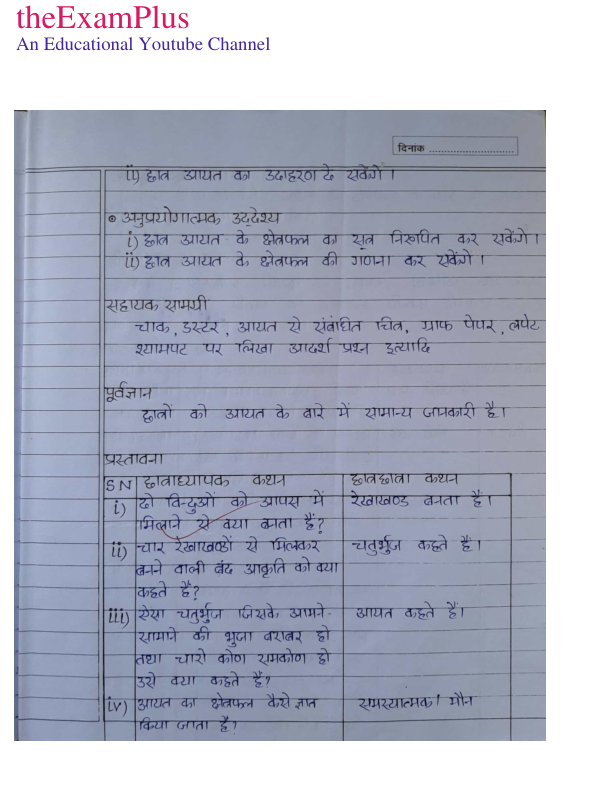 theExamPlus
An Educational Youtube Channel
दिनांक ..............................
ii) छात्र आयत का उदाहरण दे सकेंगे।
⊙ अनुप्रयोगात्मक उद्देश्य
i) छात्र आयत के क्षेत्रफल का सूत्र निरूपित कर सकेंगे।
ii) छात्र आयत के क्षेत्रफल की गणना कर सकेंगे।
सहायक सामग्री
चाक, डस्टर, आयत से संबंधित चित्र, ग्राफ पेपर, लपेट
श्यामपट पर लिखा आदर्श प्रश्न इत्यादि
पूर्वज्ञान
छात्रों को आयत के बारे में सामान्य जानकारी है।
प्रस्तावना
SN छात्राध्यापक कथन छात्र/छात्रा कथन
i) दो विन्दुओं को आपस में रेखाखण्ड बनता है।
मिलाने से क्या बनता है?
ii) चार रेखाखण्डों से मिलकर चतुर्भुज कहते है।
बनने वाली बंद आकृति को क्या
कहते है?
iii) ऐसा चतुर्भुज जिसके आमने- आयत कहते है।
सामाने की भुजा बराबर हो
तथा चारो कोण समकोण हो
उसे क्या कहते है?
iv) आयत का क्षेत्रफल कैसे ज्ञात समस्यात्मक / मौन
किया जाता है?